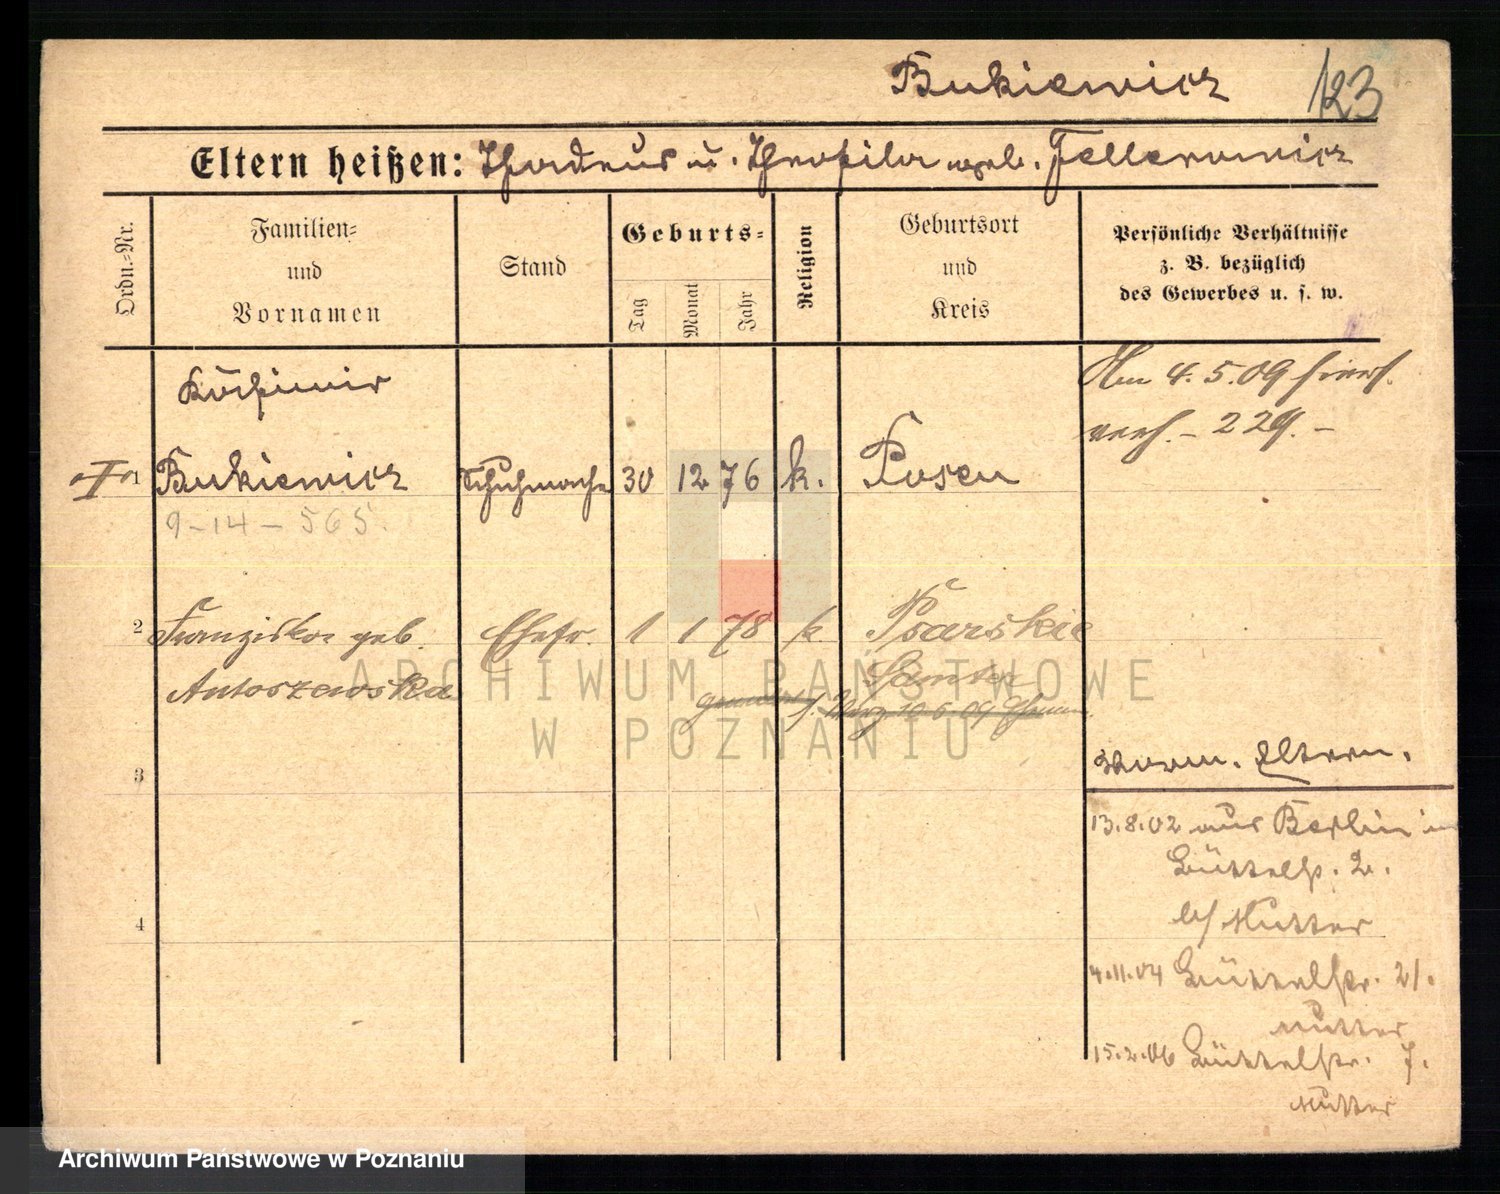 Bukiewicz 123
Eltern heißen: Thadeus u. Theofila geb. Felterowicz
Ordn.-Nr.
Familien-
und
Vornamen
Stand
Geburts-
Tag
Monat
Jahr
Religion
Geburtsort
und
Kreis
Persönliche Verhältnisse
z. B. bezüglich
des Gewerbes u. s. w.
Am 4.5.09 hiers.
verh. - 229. -
Kasimir
1 Bukiewicz Schuhmacher 30 12 76 k. Posen
9-14-565.
2 Franziska geb. Ehefr. 1 1 78 k Psarskie
Antoszewska Samter
3
4
10.6.04
Vorm. Eltern.
13.8.02 aus Berlin in
Büttelstr. 2.
b/ Mutter
4.11.04 Büttelstr. 21.
Mutter
15.2.06 Büttelstr. 7.
Mutter
ARCHIWUM PAŃSTWOWE
W POZNANIU
Archiwum Państwowe w Poznaniu